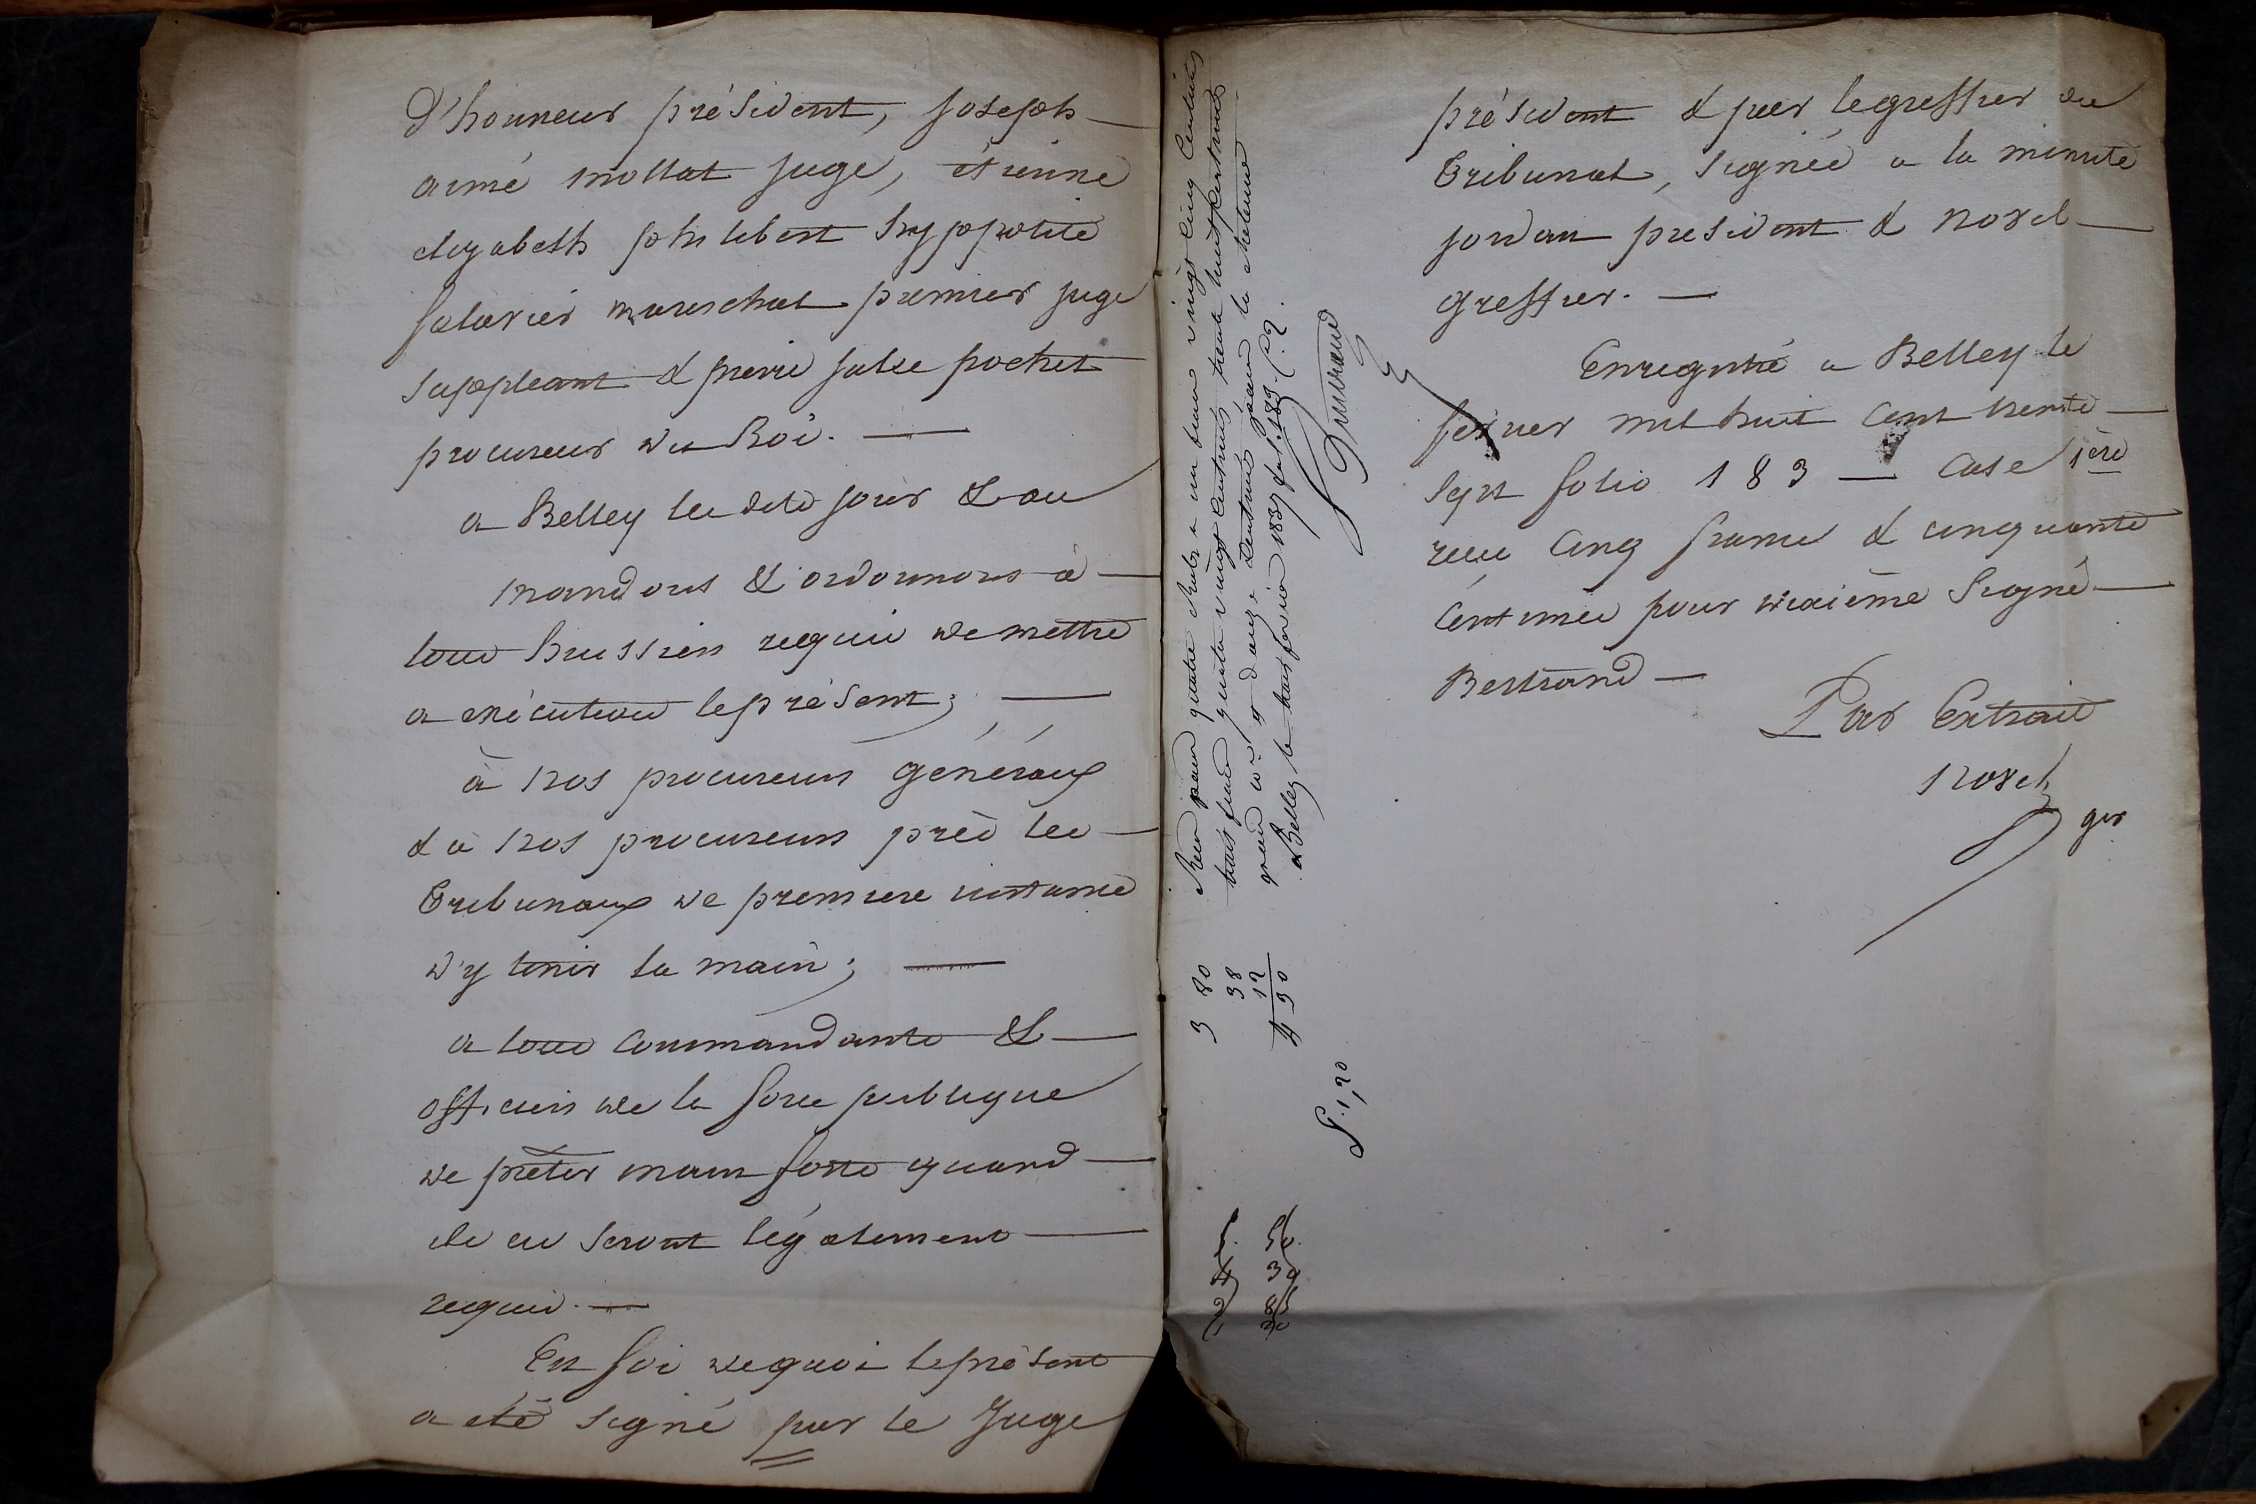 D'honneur président, Joseph
aimé mollat juge, étienne
elizabeth philibert hyppolite
mareschal premier juge
suppléant & pierre jules pochet
procureur du Roi. —
a Belley les dits jour & an
mandons & ordonnons à
tous huissiers requis de mettre
a exécution le présent; —
à nos procureurs généraux
& à nos procureurs près les
Tribunaux de premiere instance
d'y tenir la main; —
a tous commandants &
officiers de la force publique
de prêter main forte quand
ils en seront légalement
requis. —
En foi de quoi le présent
a été signé par le Juge
Reçu pour quatre rôles a un franc vingt cinq centimes
trois francs quatre vingt centimes, trente huit centimes
pour et douze centimes pour la
a Belley le trois février 1837 fol. 183. C. 2.
3 80
38
12
4 30
président & par le greffier du
Tribunal, signée a la minute
jordan president & noxel
greffier. —
Enregistré a Belley le
fevrier mil huit cent trente
sept folio 183 — Case 1ère
reçu cinq francs & cinquante
centimes pour dixième signé
Bertrand —
Par Extrait
noxel
ger